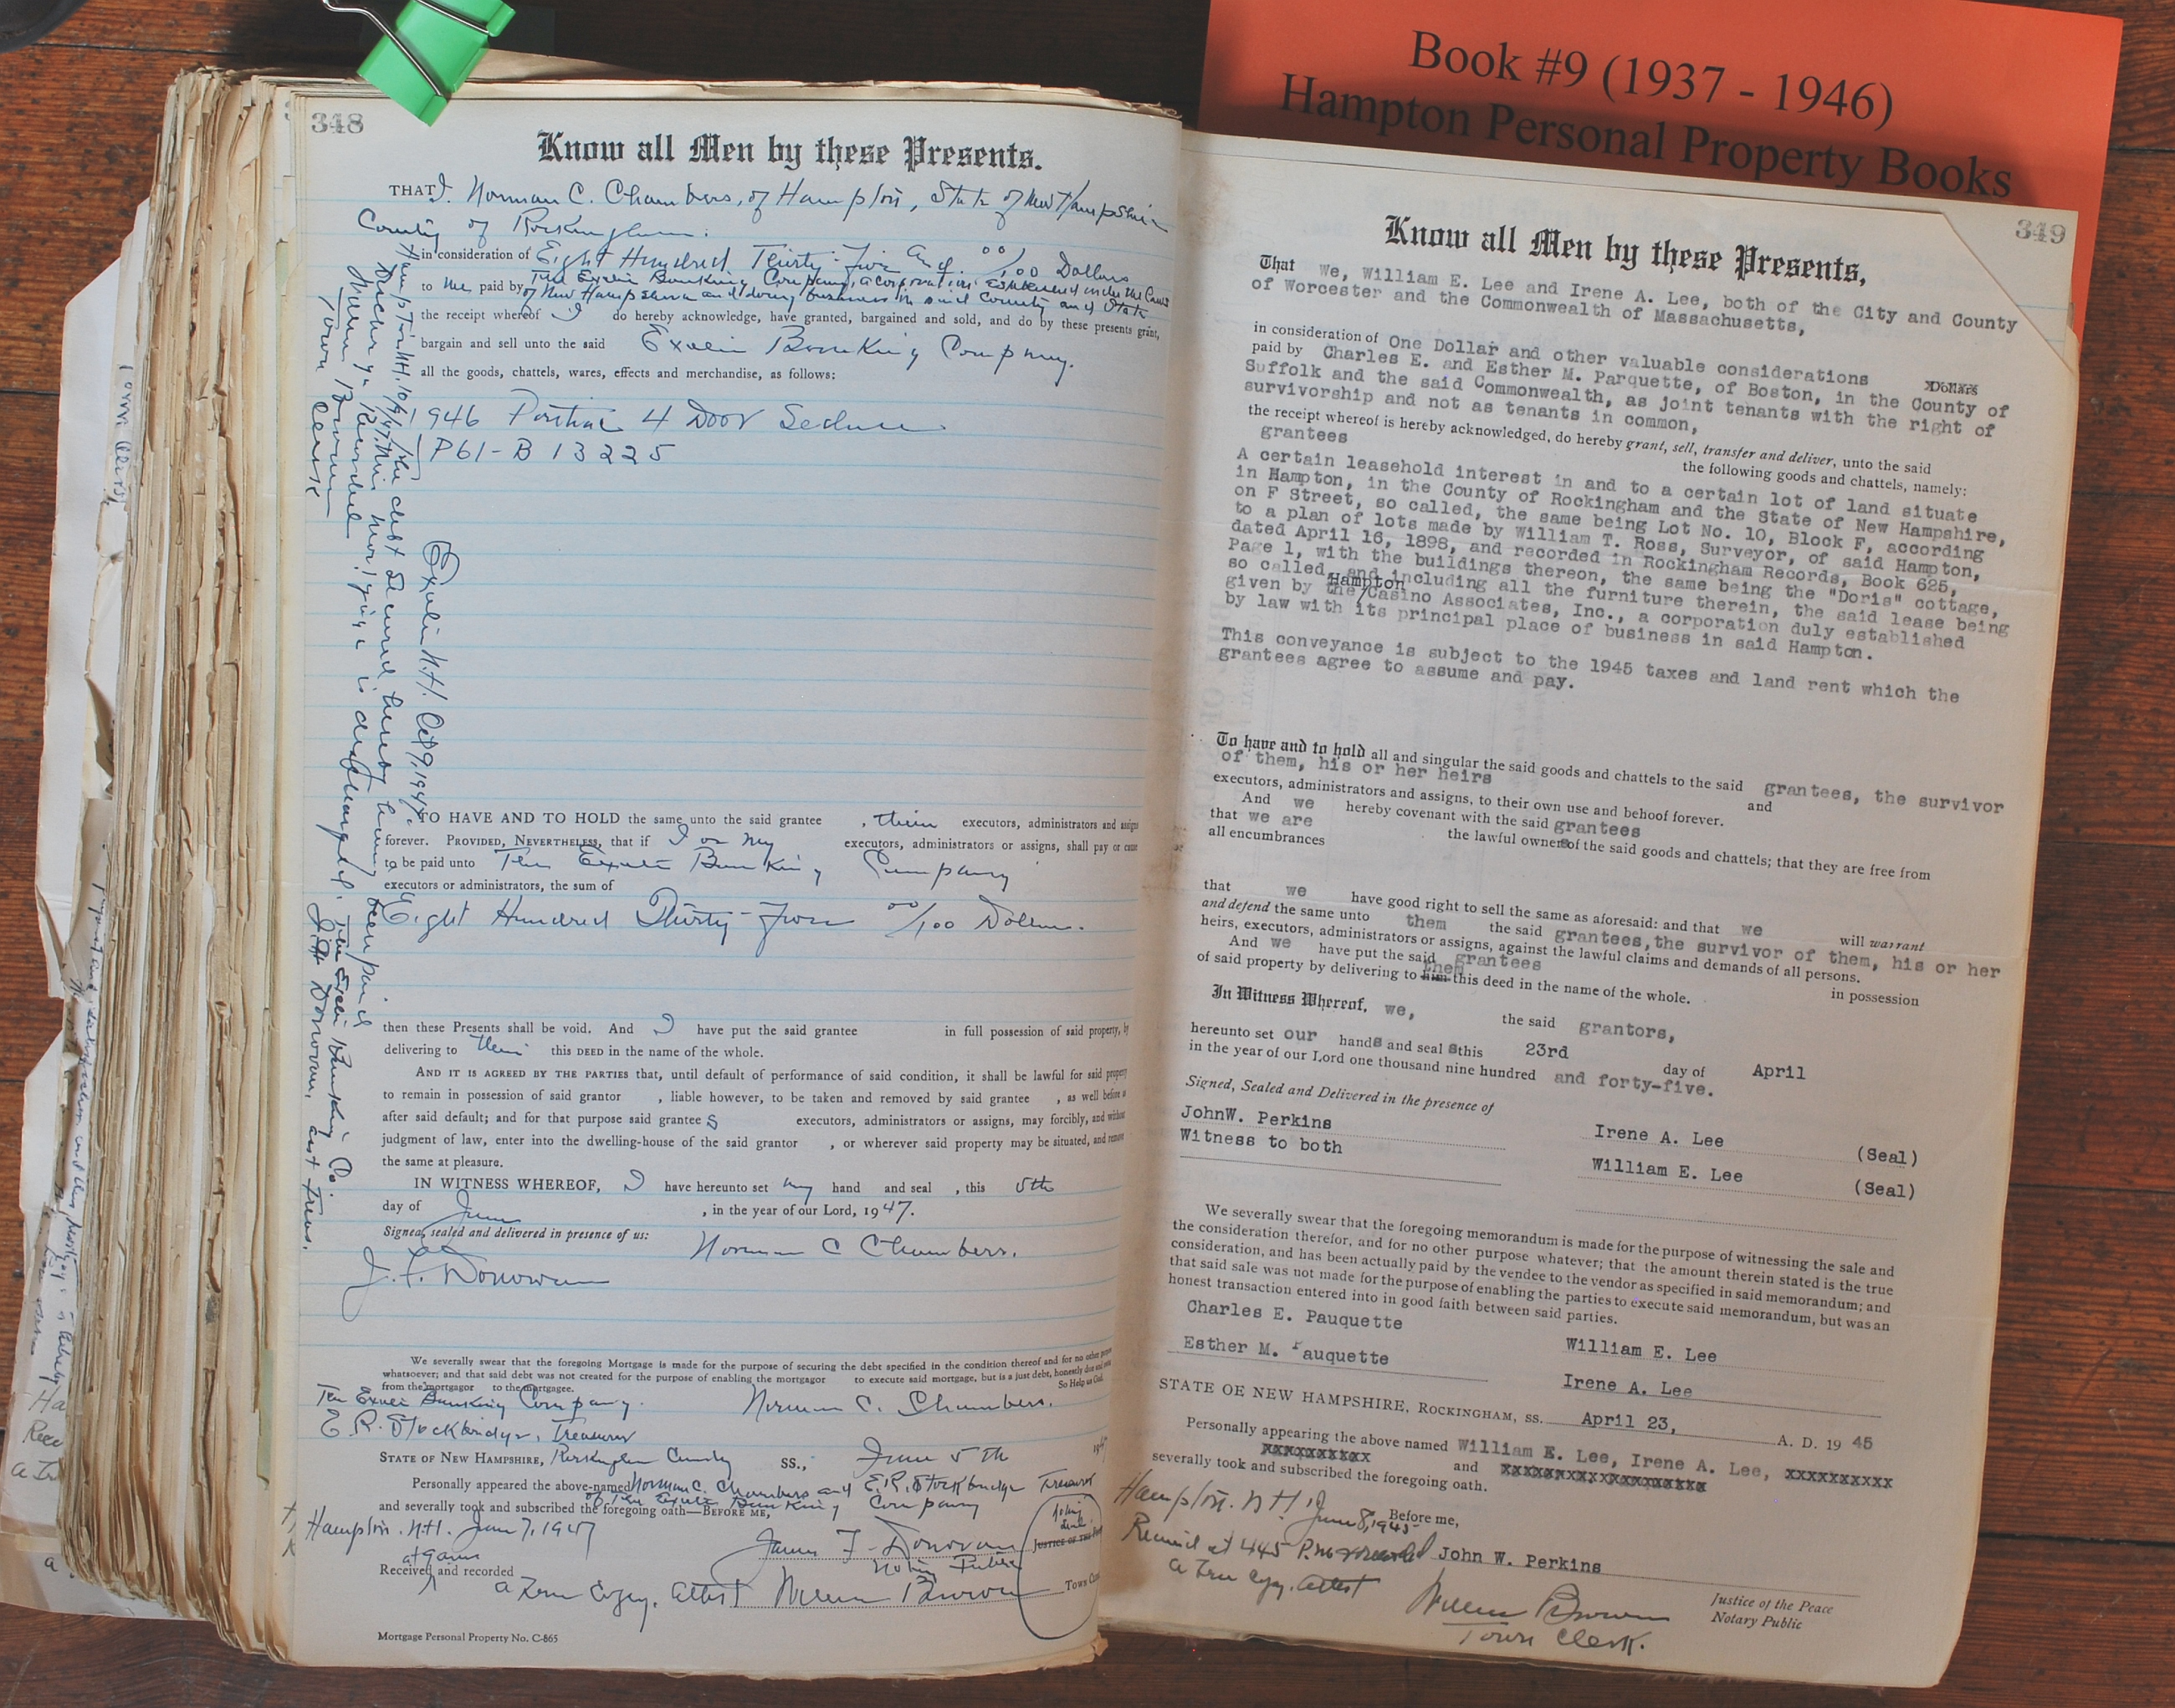 Book #9 (1937 - 1946)
Hampton Personal Property Books
348
Know all Men by these Presents.
THAT I. Norman C. Chambers, of Hampton, State of New Hampshire
County of Rockingham.
in consideration of Eight Hundred Thirty-five and 00/100 Dollars
to me paid by The Exeter Banking Company, a corporation established under the Laws
of New Hampshire and doing business in said County and State
the receipt whereof I do hereby acknowledge, have granted, bargained and sold, and do by these presents grant,
bargain and sell unto the said Exeter Banking Company.
all the goods, chattels, wares, effects and merchandise, as follows:
1946 Pontiac 4 Door Sedan
P61-B 13225
TO HAVE AND TO HOLD the same unto the said grantee , their executors, administrators and assigns
forever. PROVIDED, NEVERTHELESS, that if I or my executors, administrators or assigns, shall pay or cause
to be paid unto The Exeter Banking Company
executors or administrators, the sum of
Eight Hundred Thirty-five 00/100 Dollars.
then these Presents shall be void. And I have put the said grantee in full possession of said property, by
delivering to them this DEED in the name of the whole.
AND IT IS AGREED BY THE PARTIES that, until default of performance of said condition, it shall be lawful for said property
to remain in possession of said grantor , liable however, to be taken and removed by said grantee , as well before as
after said default; and for that purpose said grantee s executors, administrators or assigns, may forcibly, and without
judgment of law, enter into the dwelling-house of the said grantor , or wherever said property may be situated, and remove
the same at pleasure.
IN WITNESS WHEREOF, I have hereunto set my hand and seal , this 5th
day of June , in the year of our Lord, 1947.
Signed, sealed and delivered in presence of us:
Norman C Chambers.
J. F. Donovan
We severally swear that the foregoing Mortgage is made for the purpose of securing the debt specified in the condition thereof and for no other purpose
whatsoever; and that said debt was not created for the purpose of enabling the mortgagor to execute said mortgage, but is a just debt, honestly due and owing
from the mortgagor to the mortgagee. So Help us God.
The Exeter Banking Company. Norman C. Chambers.
E. R. Stockbridge, Treasurer
STATE OF NEW HAMPSHIRE, Rockingham County SS., June 5th 1947
Personally appeared the above-named Norman C. Chambers and E.R. Stockbridge Treasurer
of The Exeter Banking Company
and severally took and subscribed the foregoing oath—BEFORE ME,
Hampton. N.H. June 7, 1947
James F. Donovan JUSTICE OF THE
Notary Public
at 9 am
Received and recorded
a True Copy, Attest William Brown Town
Mortgage Personal Property No. C-865
Exeter N.H. Oct 9, 1947.
The debt secured hereby having been paid
this mortgage is discharged. The Exeter Banking Co.
J.F. Donovan, asst Treas.
Hampton N.H. 10/
William Brown
Town Clerk
349
Know all Men by these Presents,
That We, William E. Lee and Irene A. Lee, both of the City and County
of Worcester and the Commonwealth of Massachusetts,
in consideration of One Dollar and other valuable considerations Dollars
paid by Charles E. and Esther M. Parquette, of Boston, in the County of
Suffolk and the said Commonwealth, as joint tenants with the right of
survivorship and not as tenants in common,
the receipt whereof is hereby acknowledged, do hereby grant, sell, transfer and deliver, unto the said
grantees the following goods and chattels, namely:
A certain leasehold interest in and to a certain lot of land situate
in Hampton, in the County of Rockingham and the State of New Hampshire,
on F Street, so called, the same being Lot No. 10, Block F, according
to a plan of lots made by William T. Ross, Surveyor, of said Hampton,
dated April 16, 1898, and recorded in Rockingham Records, Book 625,
Page 1, with the buildings thereon, the same being the "Doris" cottage,
so called, and including all the furniture therein, the said lease being
given by the/Hampton Casino Associates, Inc., a corporation duly established
by law with its principal place of business in said Hampton.
This conveyance is subject to the 1945 taxes and land rent which the
grantees agree to assume and pay.
To have and to hold all and singular the said goods and chattels to the said grantees, the survivor
of them, his or her heirs and
executors, administrators and assigns, to their own use and behoof forever.
And we hereby covenant with the said grantees
that we are the lawful owners of the said goods and chattels; that they are free from
all encumbrances
that we have good right to sell the same as aforesaid: and that we will warrant
and defend the same unto them the said grantees, the survivor of them, his or her
heirs, executors, administrators or assigns, against the lawful claims and demands of all persons.
And we have put the said grantees in possession
of said property by delivering to him them this deed in the name of the whole.
In Witness Whereof, we, the said grantors,
hereunto set our hands and seal s this 23rd day of April
in the year of our Lord one thousand nine hundred and forty-five.
Signed, Sealed and Delivered in the presence of
JohnW. Perkins Irene A. Lee (Seal)
Witness to both William E. Lee (Seal)
We severally swear that the foregoing memorandum is made for the purpose of witnessing the sale and
the consideration therefor, and for no other purpose whatever; that the amount therein stated is the true
consideration, and has been actually paid by the vendee to the vendor as specified in said memorandum; and
that said sale was not made for the purpose of enabling the parties to execute said memorandum, but was an
honest transaction entered into in good faith between said parties.
Charles E. Pauquette William E. Lee
Esther M. Pauquette Irene A. Lee
STATE OF NEW HAMPSHIRE, ROCKINGHAM, SS. April 23, A. D. 19 45
Personally appearing the above named William E. Lee, Irene A. Lee, xxxxxxxxxx
xxxxxxxxxx and xxxxxxxxxxxxxxxxxxx
severally took and subscribed the foregoing oath.
Hampton. N.H. June 8, 1945 Before me,
Received at 445 P.M. recorded John W. Perkins
a True Copy. Attest
William Brown Justice of the Peace
Town Clerk. Notary Public